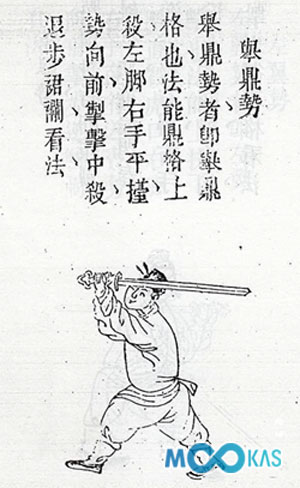 擧鼎勢
擧鼎勢者卽擧鼎
格也法能鼎格上
殺左脚右手平擡
勢向前掣擊中殺
退步裙襴看法
MOOKAS